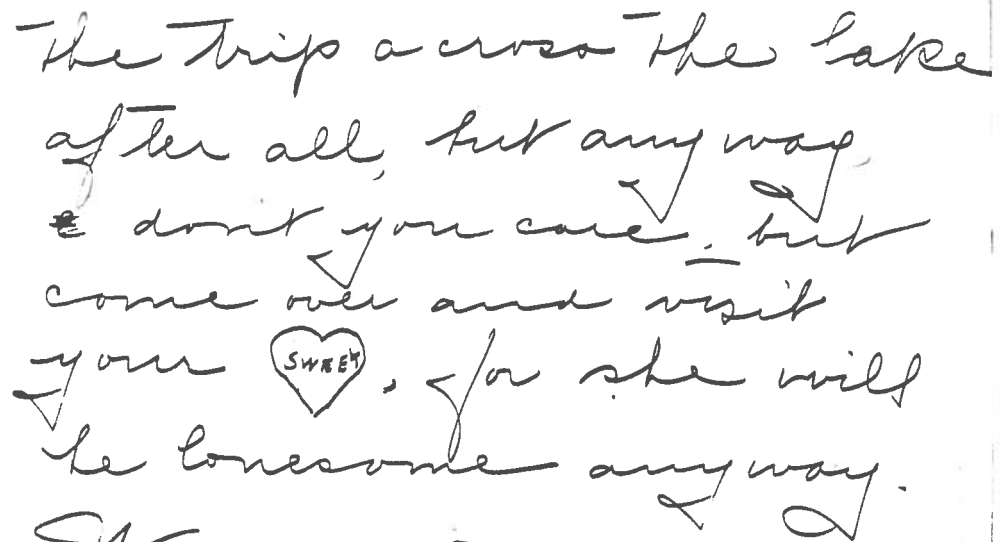 the trip across the lake
after all, but anyway
dont you care, but
come over and visit
your SWEET, for she will
be lonesome anyway.